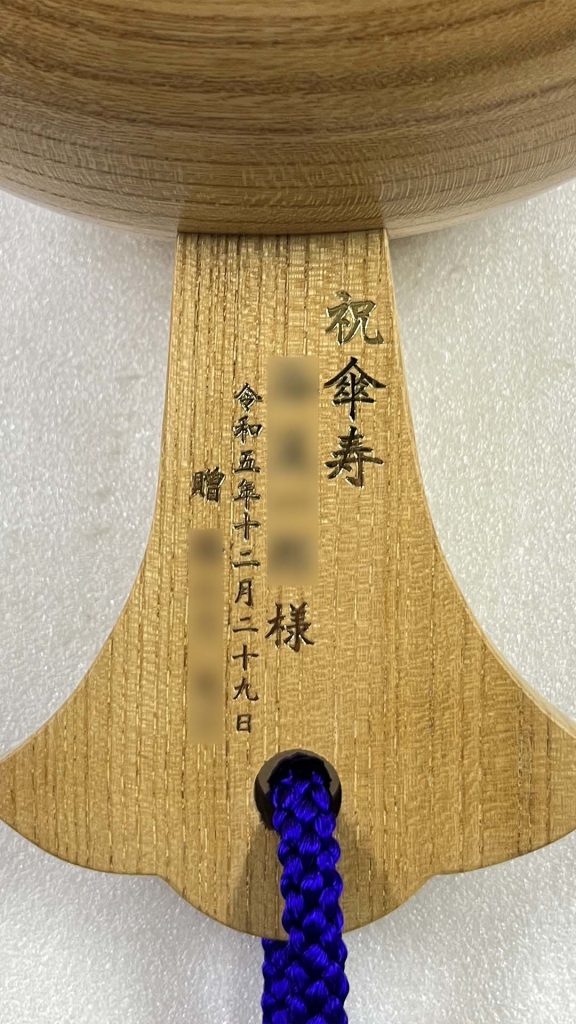 祝傘寿
様
令和五年十二月二十九日
贈